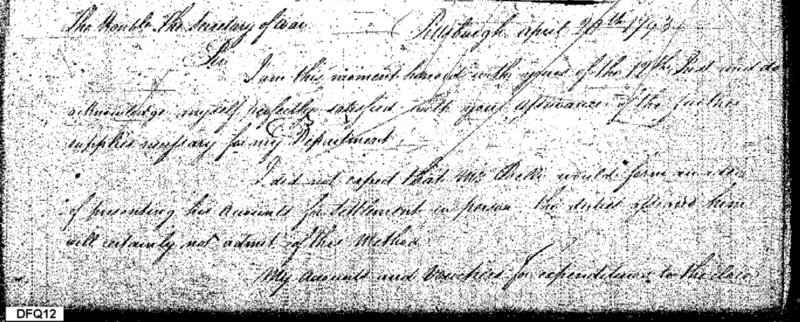 The Honble The Secretary of War Pittsburgh april 20th 1793
Sir
I am this moment honored with yours of the 12th Inst and do
acknowledge myself perfectly satisfied with your assurances of the further
supplies necessary for my Department
I did not expect that Mr would form an idea
of presenting his accounts for settlement in person the duties him
will certainly not admit of this Method
My accounts and Vouchers for expenditures to the close
DFQ12